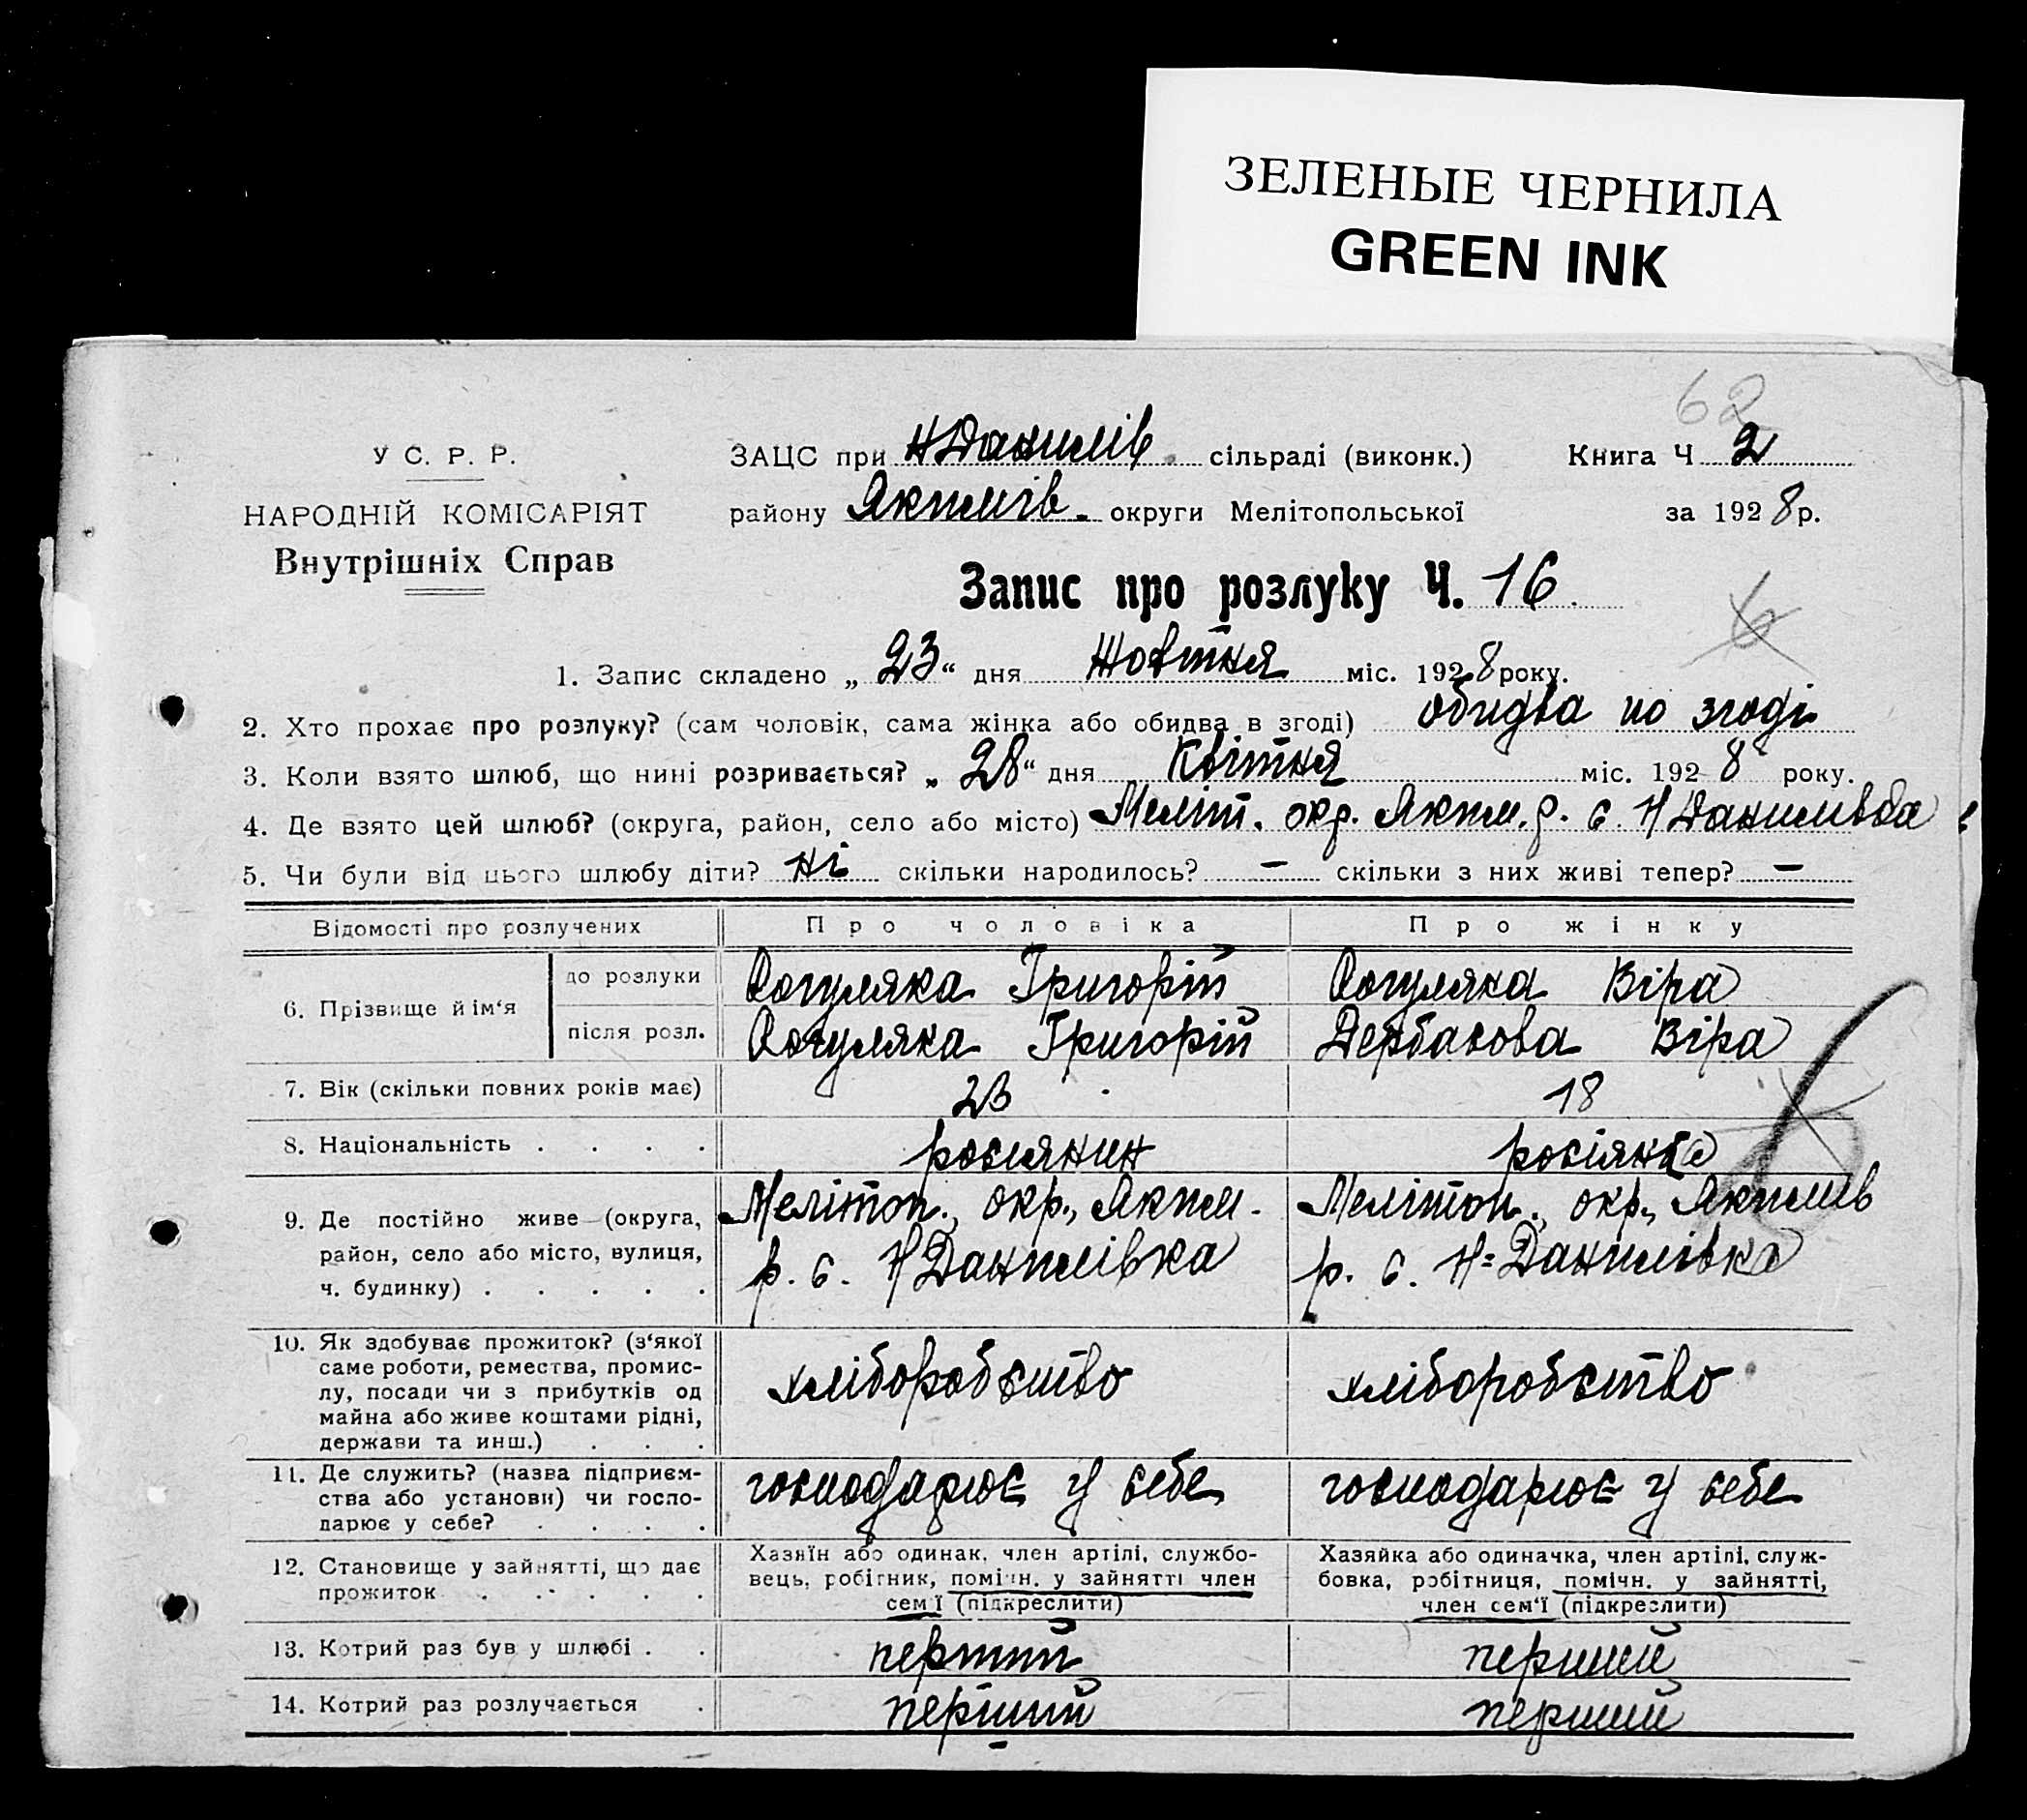 ЗЕЛЕНЫЕ ЧЕРНИЛА
GREEN INK
62
У С. Р. Р.
НАРОДНІЙ КОМІСАРІЯТ
Внутрішніх Справ
ЗАЦС при Н Данилів сільраді (виконк.) Книга Ч 2
району Якимів. округи Мелітопольської за 1928 р.
Запис про розлуку Ч. 16
6
1. Запис складено „ 23 “ дня Жовтня міс. 1928 року.
2. Хто прохає про розлуку? (сам чоловік, сама жінка або обидва в згоді) обидва по згоді
3. Коли взято шлюб, що нині розривається? „ 28 “ дня Квітня міс. 1928 року.
4. Де взято цей шлюб? (округа, район, село або місто) Меліт. окр. Яким. р. с. Н Данилівка
5. Чи були від цього шлюбу діти? ні скільки народилось? — скільки з них живі тепер? —
Відомості про розлучених Про чоловіка Про жінку
6. Прізвище й ім‘я
до розлуки Григорій Віра
після розл. Григорій Віра
7. Вік (скільки повних років має) 23 18
8. Національність . . . . росиянин росіянка
9. Де постійно живе (округа,
район, село або місто, вулиця,
ч. будинку) . . . . .
Мелітоп., окр., Яким.
р. с. Н Данилівка
Мелітоп., окр., Якимів
р. с. Н=Данилівка
10. Як здобуває прожиток? (з‘якої
саме роботи, ремества, промис-
лу, посади чи з прибутків од
майна або живе коштами рідні,
держави та инш.) . . .
хліборобство
хліборобство
11. Де служить? (назва підприєм-
ства або установи) чи госпо-
дарює у себе? . . . .
господарює у себе
господарює у себе
12. Становище у зайнятті, що дає
прожиток . . . . .
Хазяїн або одинак, член артілі, службо-
вець, робітник, помічн. у зайнятті член
сем‘ї (підкреслити)
Хазяйка або одиначка, член артілі, служ-
бовка, робітниця, помічн. у зайнятті,
член сем‘ї (підкреслити)
13. Котрий раз був у шлюбі . . перший перший
14. Котрий раз розлучається . перший перший